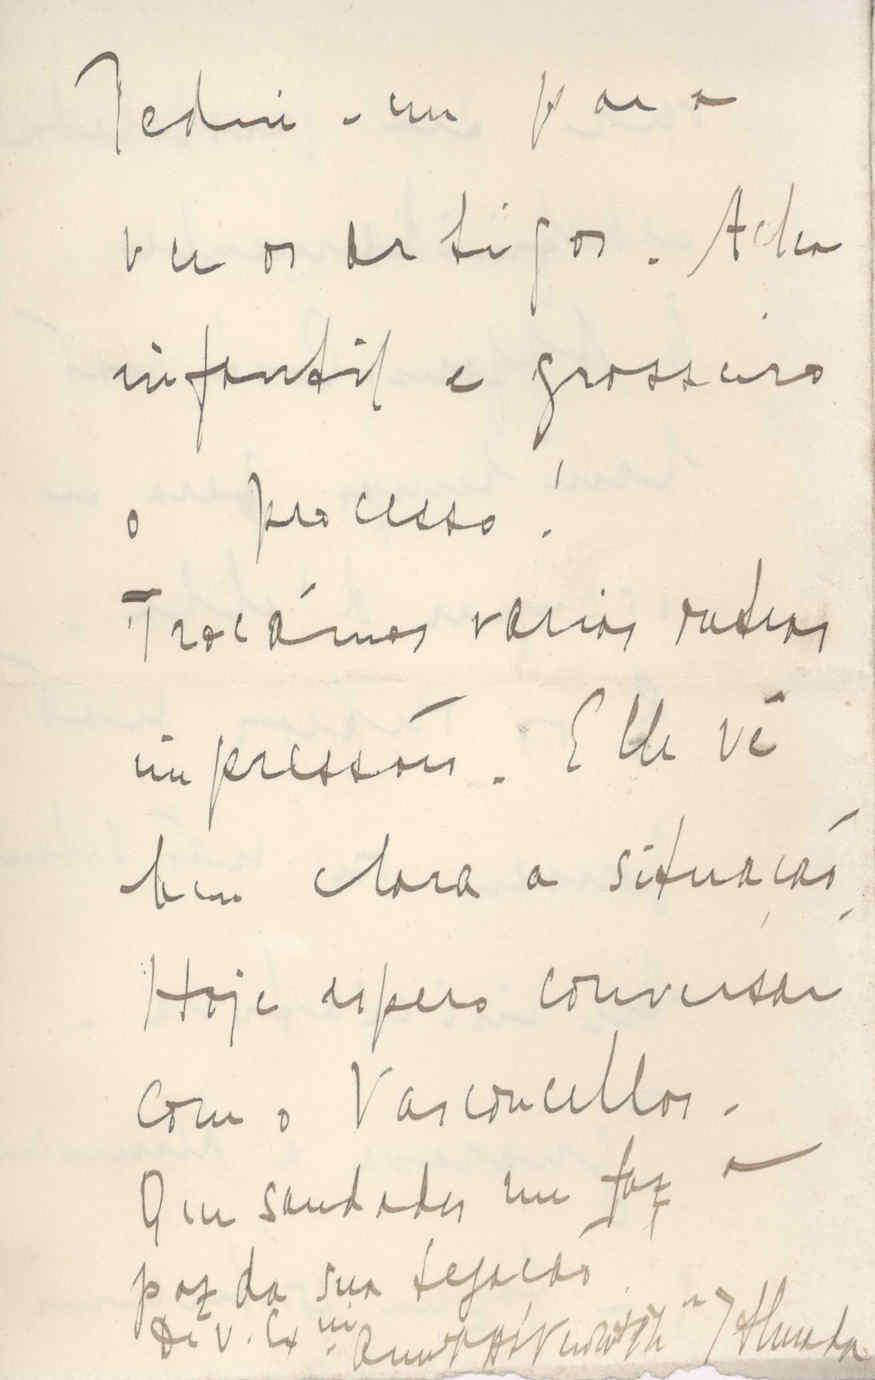 Pediu-me para
ver os artigos. Acha
infantil e grosseiro
o processo!
Trocámos varias outras
impressões. Elle vê
bem clara a situação.
Hoje espero conversar
com o Vasconcellos.
Que saudades me faz a
paz da sua Legação
De V. Exª
Almada